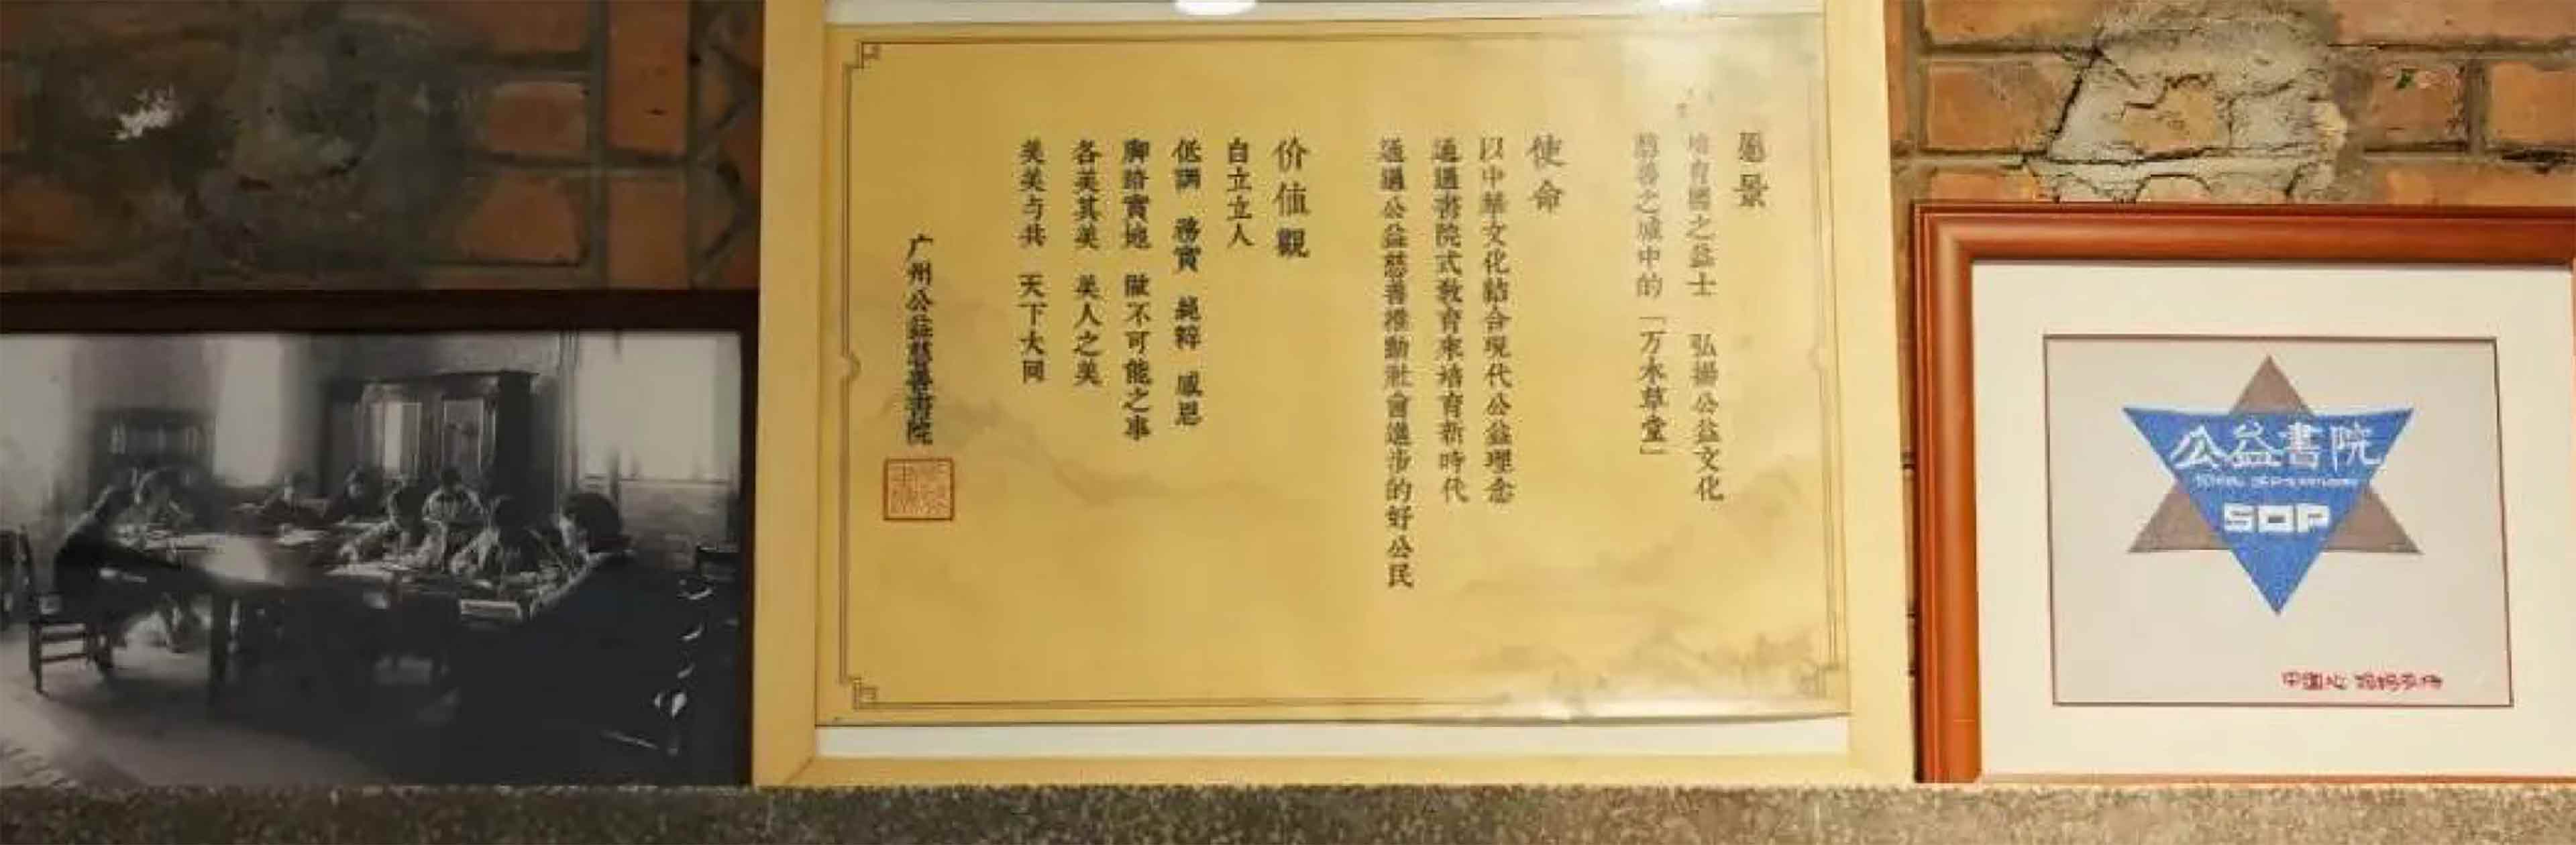 愿景
培育國之益士 弘揚公益文化
慈善之城中的「万木草堂」
使命
以中華文化結合現代公益理念
通過書院式教育來培育新時代
通過公益慈善推動社會進步的好公民
价值觀
自立立人
低調 務實 純粹 感恩
腳踏實地 做不可能之事
各美其美 美人之美
美美与共 天下大同
广州公益慈善書院
公益書院
SOP